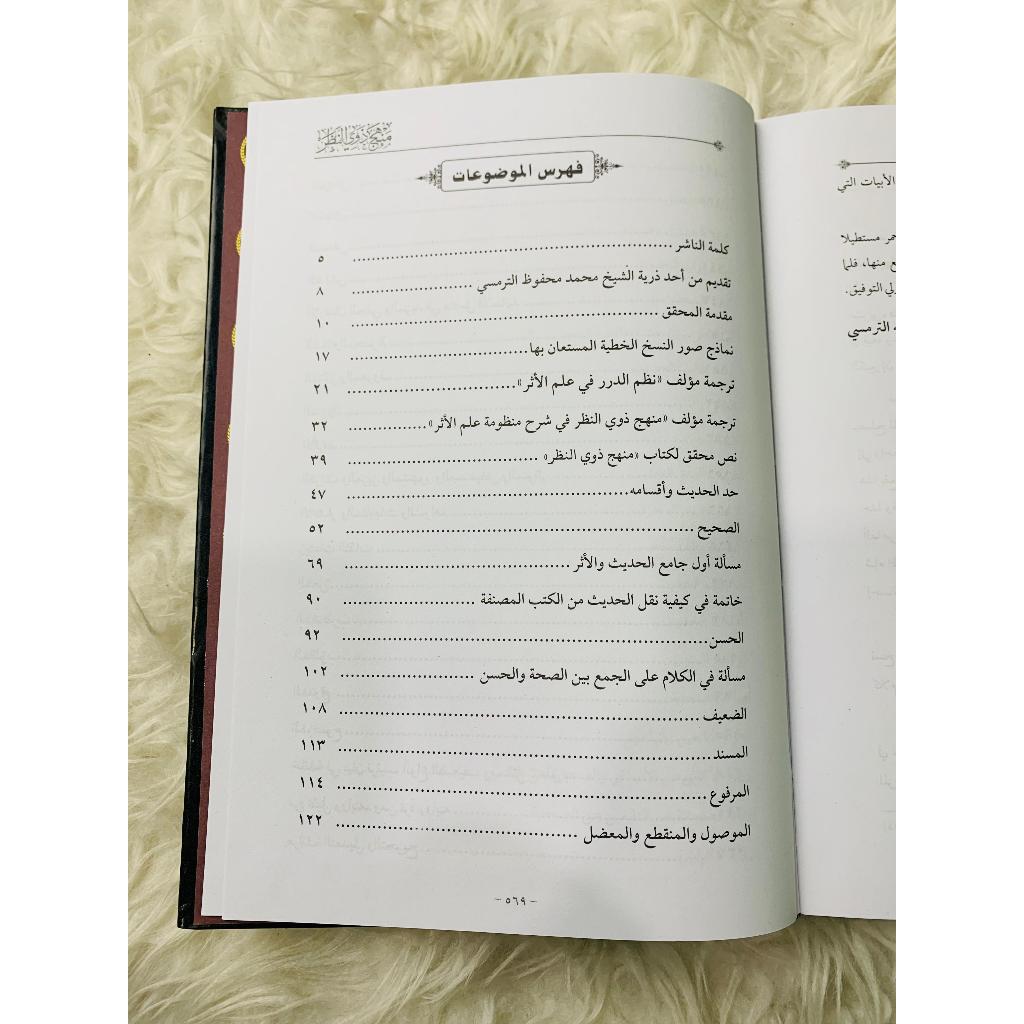 منهج ذوي النظر
فهرس الموضوعات
كلمة الناشر ............ ٥
تقديم من أحد ذرية الشيخ محمد محفوظ الترمسي ............ ٨
مقدمة المحقق ............ ١٠
نماذج صور النسخ الخطية المستعان بها ............ ١٧
ترجمة مؤلف «نظم الدرر في علم الأثر» ............ ٢١
ترجمة مؤلف «منهج ذوي النظر في شرح منظومة علم الأثر» ............ ٣٢
نص محقق لكتاب «منهج ذوي النظر» ............ ٣٩
حد الحديث وأقسامه ............ ٤٧
الصحيح ............ ٥٢
مسألة أول جامع الحديث والأثر ............ ٦٩
خاتمة في كيفية نقل الحديث من الكتب المصنفة ............ ٩٠
الحسن ............ ٩٢
مسألة في الكلام على الجمع بين الصحة والحسن ............ ١٠٢
الضعيف ............ ١٠٨
المسند ............ ١١٣
المرفوع ............ ١١٤
الموصول والمنقطع والمعضل ............ ١٢٢
- ٥٦٩ -
الأبيات التي
مستطيلا
منها، فلما
التوفيق.
الترمسي